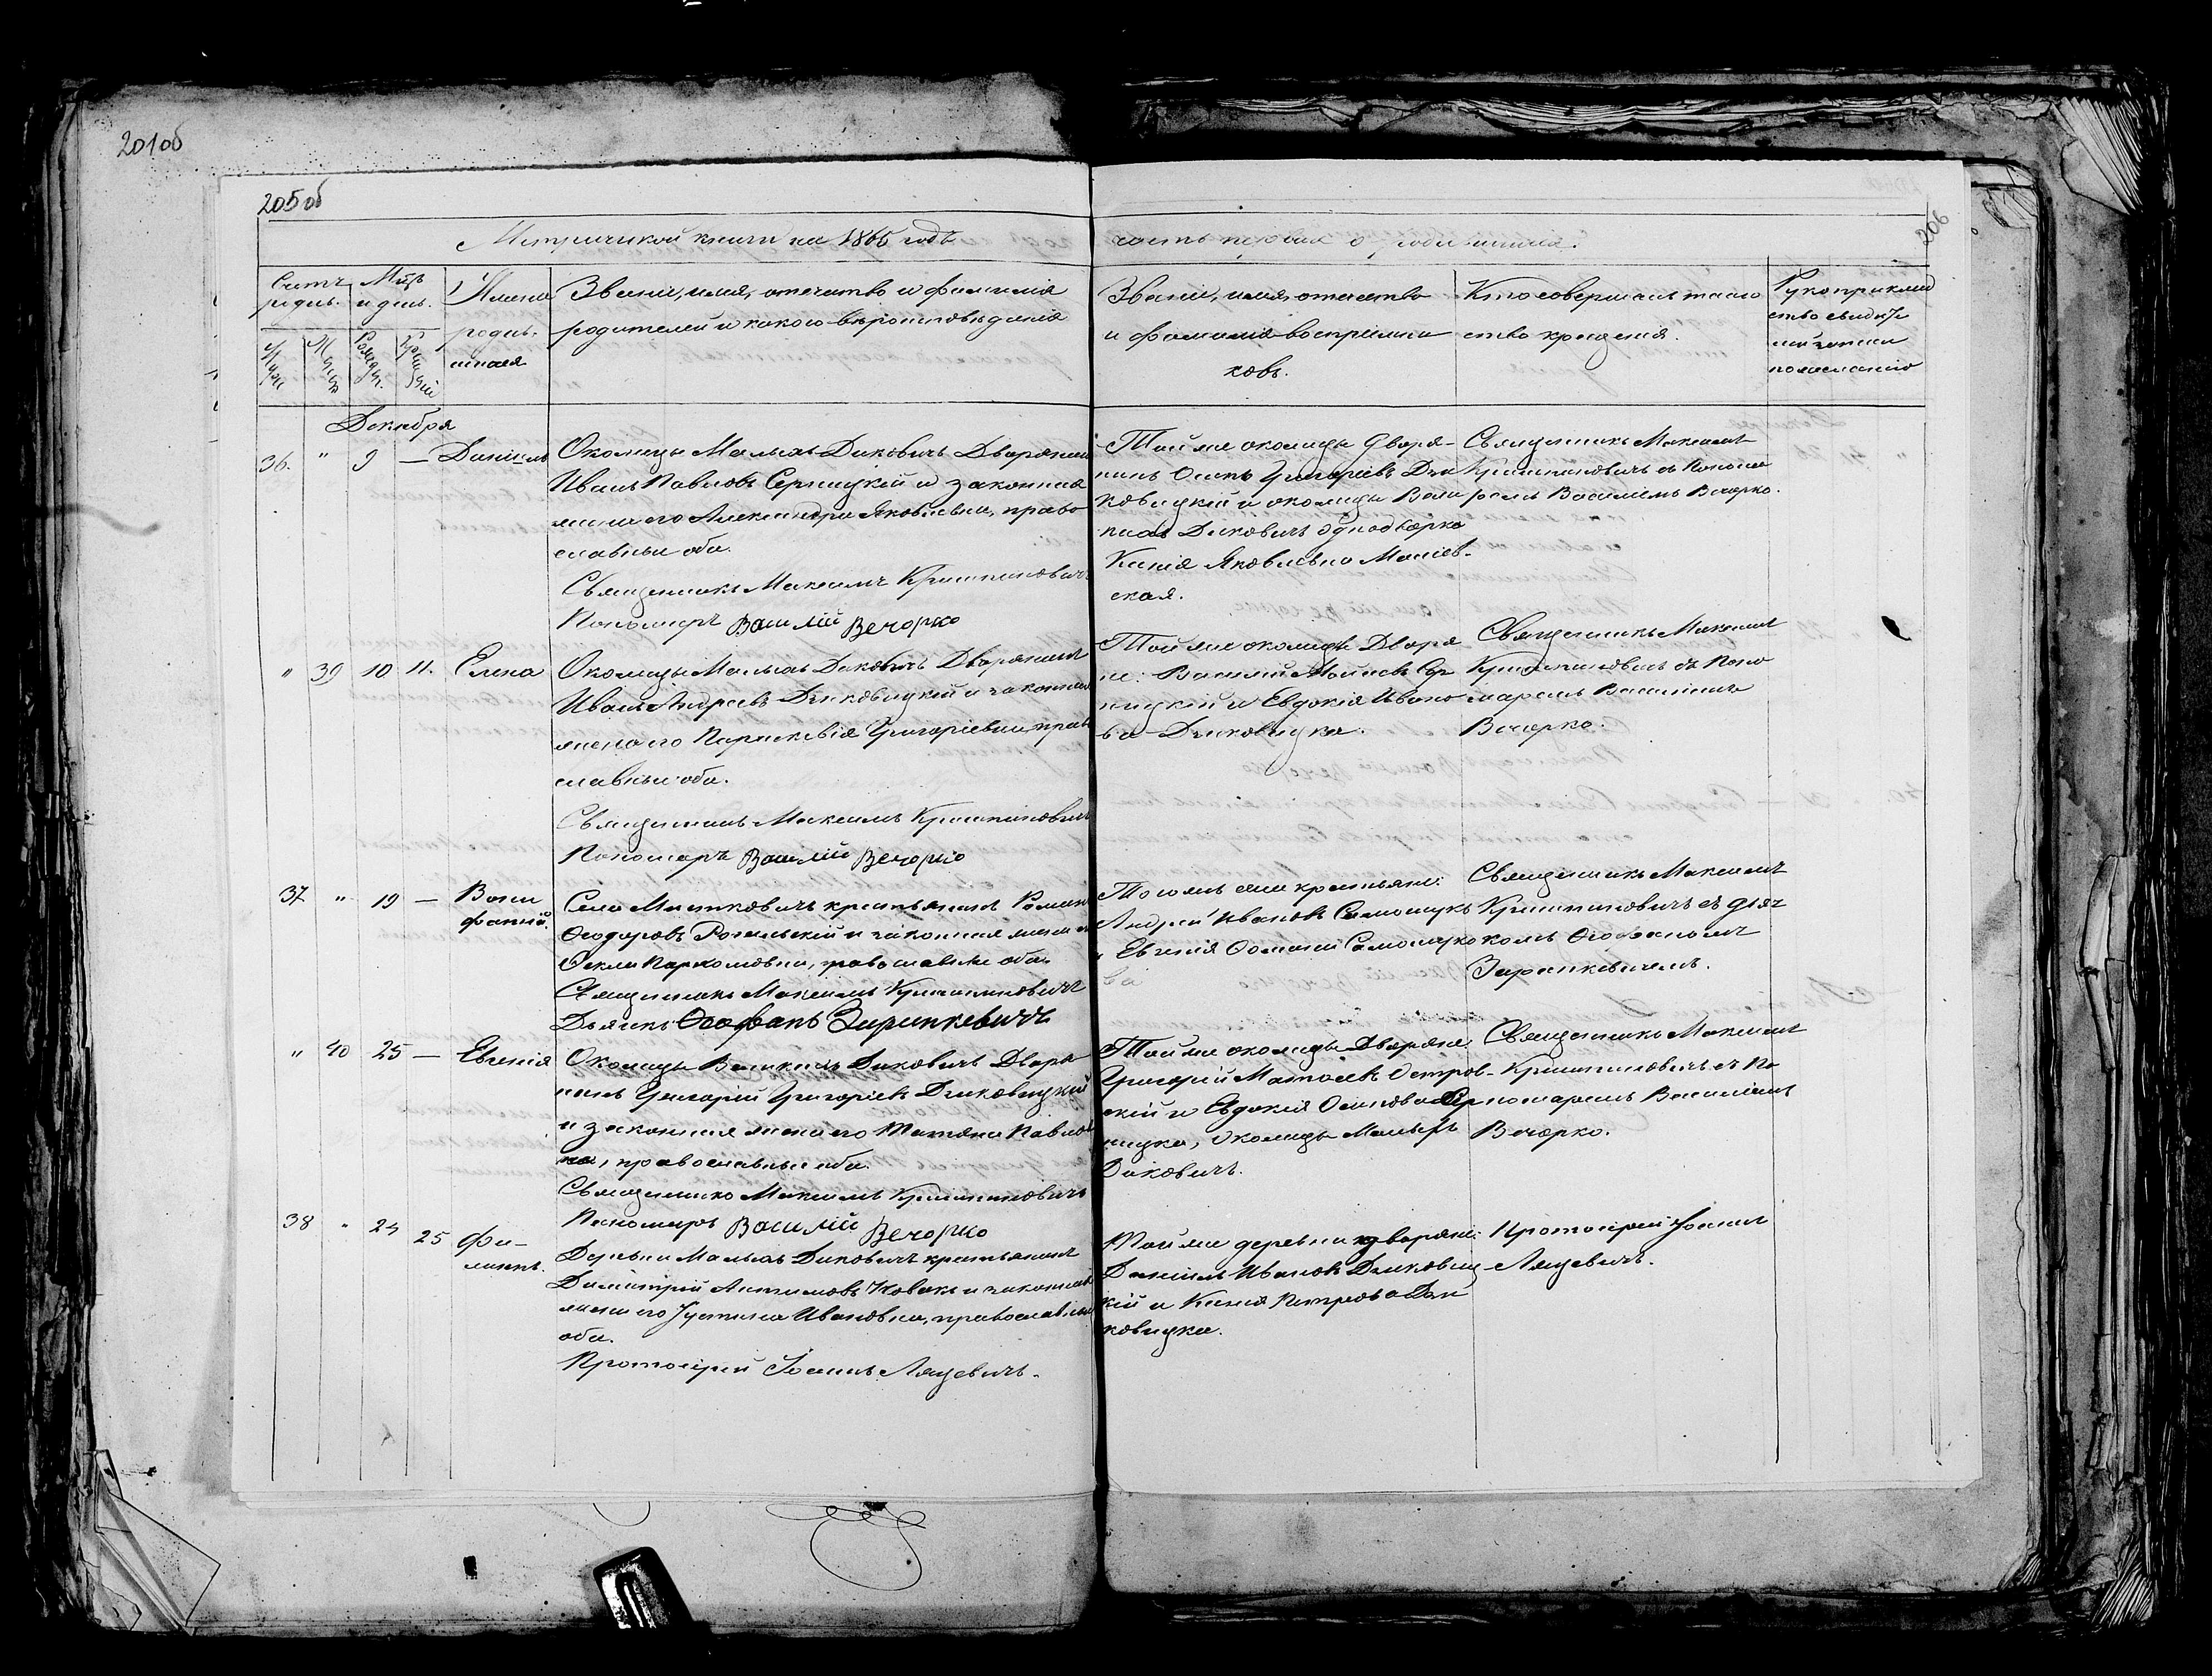 201об
205об
206
Метрической книги на 1866 годъ
часть первая о родившихся.
Счетъ родив.
Мѣс. и день.
Имена
родив-
шихся
Званіе, имя, отчество и фамилія
родителей и какого вѣроисповѣданія
Званіе, имя, отчество
и фамилія воспріемни
ковъ.
Кто совершалъ таин
ство крещенія.
Рукоприклад
ство свидѣте
лей записи
по желанію
Декабря
36. " 9 — Даніилъ
Околицы Малыхъ Диковичъ Дворянинъ
Иванъ Павловъ Серницкій и законная
жена его Александра Яковлевна, право
славные оба.
Священникъ Максимъ
Пономаръ Василій Вечорко
Той же околицы Дворя-
нинъ Осипъ Григорьевъ Дзи
ковицкій и околицы Вели
Диковичъ однодворка
Ксенія Яковлевна
ская.
Священникъ Максимъ
съ Понома
ремъ Василіемъ Вечорко.
" 39 10 11. Елена
Околицы Малыхъ Диковичъ Дворянинъ
Иванъ Андреевъ Дзиковицкій и законная
жена его Параскевія Григоріевна, право
славные оба.
Священникъ Максимъ
Пономаръ Василій Вечорко
Той же околицы Дворя
не: Василій Сер
ницкій и Евдокія Ивано
ва Дзиковицка.
Священникъ Максимъ
съ Поно
маремъ Василіемъ
Вечорко.
37 " 19 — Вони
фатій.
Села крестьянинъ Романъ
Ѳеодоровъ и законная жена его
Ѳекла Пархомовна, православные оба.
Священникъ Максимъ
Дьячекъ Ѳеофанъ Заринкевичъ
Того жъ села крестьяне:
Андрей Ивановъ Самощукъ
и Евгенія Самощуко
ва
Священникъ Максимъ
съ дьяч
комъ Ѳеофаномъ
Заринкевичемъ.
" 40 25 — Евгенія
Околицы Великихъ Диковичъ Дворя
нинъ Григорій Григоріевъ Дзиковицкій
и законная жена его Татіана Павлов
на, православные оба.
Священникъ Максимъ
Пономаръ Василій Вечорко
Той же околицы Дворяне
Григорій Матвѣевъ Остров-
скій и Евдокія Осипова Сер
ницка, околицы Малыхъ
Диковичъ.
Священникъ Максимъ
съ По
номаремъ Василіемъ
Вечорко.
38 " 24 25 Фи-
липпъ.
Деревни Малыхъ Диковичъ крестьянинъ
Димитрій Ковахъ и законная
жена его Іустина Ивановна, православные
оба.
Протоіерей Іоаннъ Лящевичъ.
Той же деревни дворяне:
Даніилъ Ивановъ Дзиковиц-
кій и Ксенія Петрова Дзи
ковицка.
Протоіерей Іоаннъ
Лящевичъ.